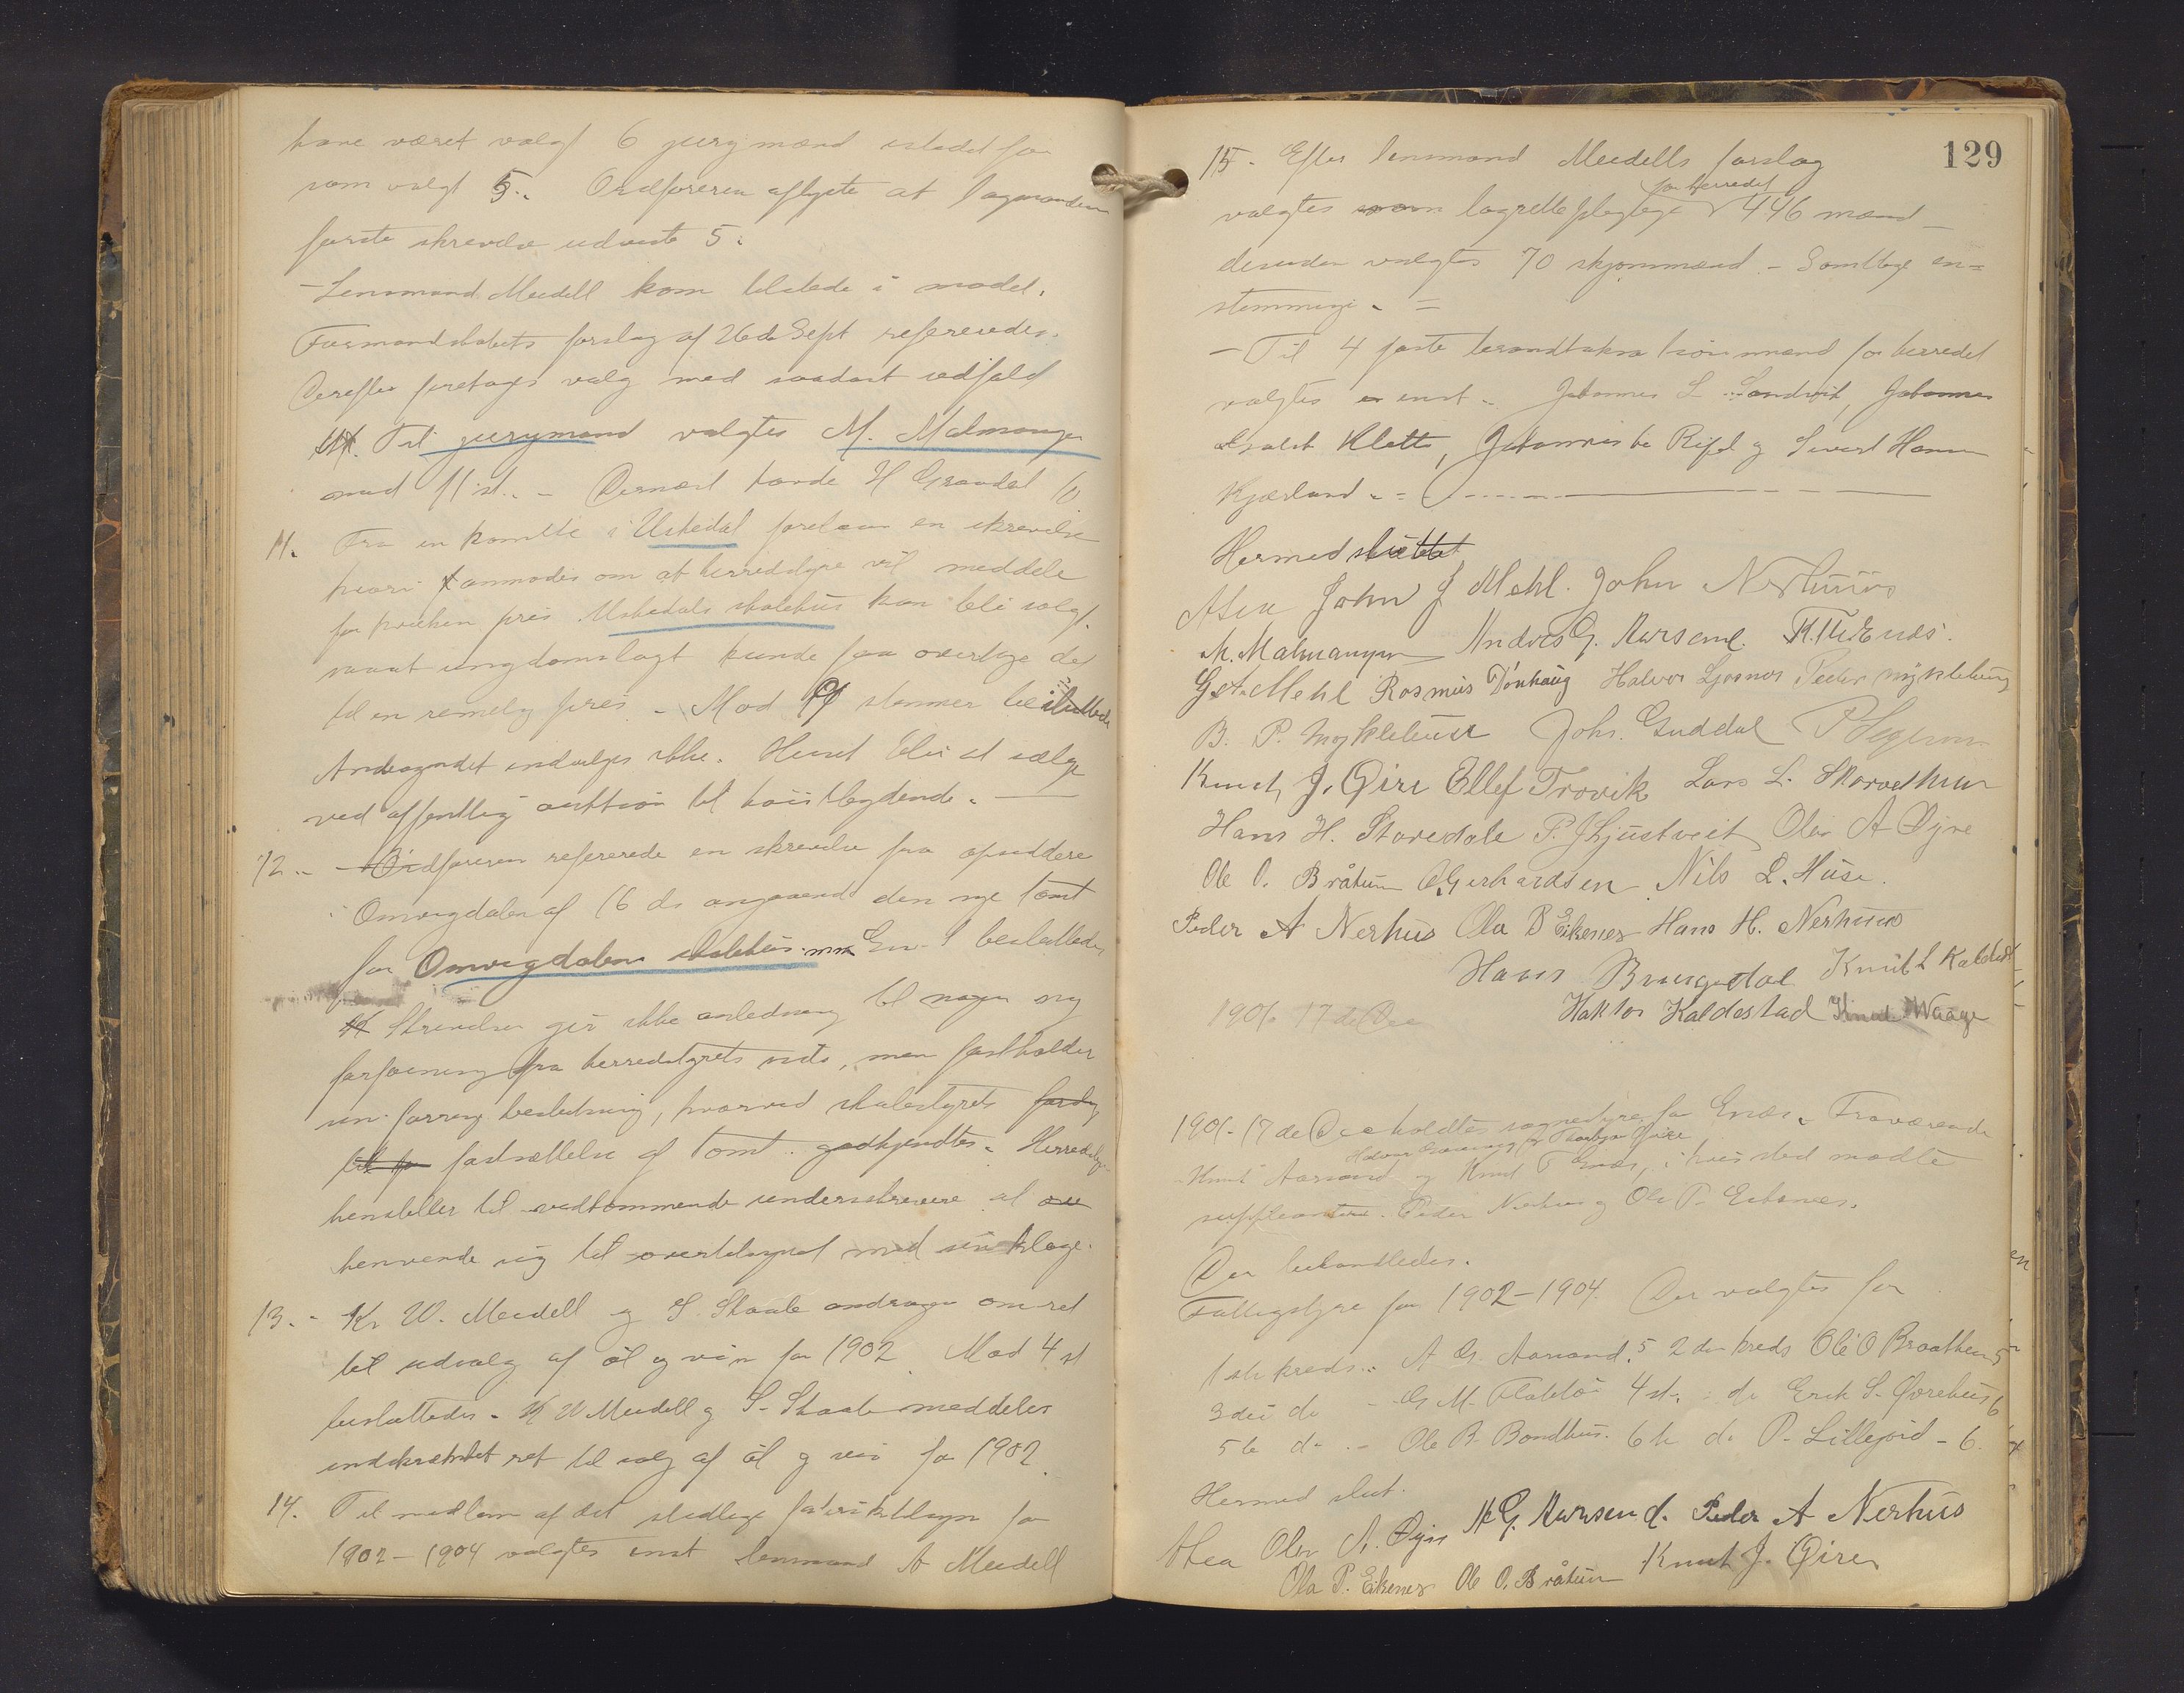 have været valgt 6 jurymænd istedet for
som valgt 5. Ordføreren oplyste at lagmanden
første skrivelse udviste 5.
- Lensmand Meidell kom tilstede i mødet.
Formandskabets forslag af 26de Sept refereredes.
Derefter foretoges valg med saadant udfald
Til jurymand valgtes M. Malmanger
med 11 st. - Dernæst havde H Grandal 10
11. Fra en komite i Uskedal forelaa en skrivelse
hvori anmodes om at herredstyre vil meddele
for hvilken pris Uskedals skolehus kan bli solgt.
samt ungdomslagt kunde faa overtage det
til en rimelig pris. - Mod 9 stemmer besluttedes
Andragendet indvilges ikke. Huset blir at sælge
ved offentlig auktion til høistbydende. -
12. - Ordføreren refererede en skrivelse fra opsiddere
i Omvigdalen af 16 ds angaaende den nye tomt
for Omvigdalens skolehus. En- besluttedes
Skrivelsen gir ikke anledning til nogen ny
forføining fra herredstyrets side, men fastholder
sin forrige beslutning, hvorved skolestyrets
fastsættelse af tomt godkjendtes. Herredsty-
henstiller til vedkommende underskrivere at
henvende sig til overtilsynet med sin klage.
13. - Kr W. Meidell og S. Skaale andrager om ret
til udsalg af øl og vin for 1902. Mod 4 st
besluttedes. K W Meidell og S. Skaale meddeles
indskrænket ret til salg af øl og vin for 1902.
14. Til medlem af det stedlige fabriktilsyn for
1902 - 1904 valgtes enst lensmand A Meidell
129
15. Efter lensmand Meidells forslag
for herredet
valgtes lagretteplegtige 446 mænd
desuden valgtes 70 skjønmænd. - Samtlige en=
stemmige. =
- Til 4 faste brandtakstsmænd for herredet
valgtes enst. Johannes L Sandvik, Johannes
Klette, Johannes Rifel og Sivert Hansen
Kjærland. =
Hermed sluttet
Aten John J Mehl. John Nerhuus
M. Malmanger Andres G. Aarsand. K. T. Enæs.
G. A. Mehl Rasmus Dønhaug Halvor Ljosnes Peder Myklebust
B. P. Myklebust Johs. Guddal P Segerm
Knut J. Øire Ellef Trovik Lars L. Skorvethun
Hans H. Staredale P. J Ljustveit Olav A Øyre
Ole O. Bråtun O. Gerhardsen Nils L. Huse.
Peder A Nerhus Ola P Eikenes Hans H. Nerhuus
Hans Brusgedal Knut L Kaldestad
1901 17 de Dec Haktor Kaldestad Knut Waage
1901 - 17 de Dec holdtes sognestyre for Enæs. Fraværende
Knut Aarsand og Knut T Enæs, i hvis sted mødte
suppleanterne Peder Nerhus og Ole P. Eikenæs.
Der behandledes.
Fattigstyre for 1902 - 1904. Der valgtes for
1ste kreds. A G. Aarsand. 5 2den kreds Ole O Braathen 5
3die do - G M. Flatebø 4 st. do Erik S. Øvrehus 6
5te do - Ole B. Bondhus. 6te do P. Lillejord - 6.
Hermed slut.
Atea Olav A. Øyre A. G. Aarsand. Peder A Nerhus
Ola P. Eikenes Ole O. Bråtun Knut J. Øire